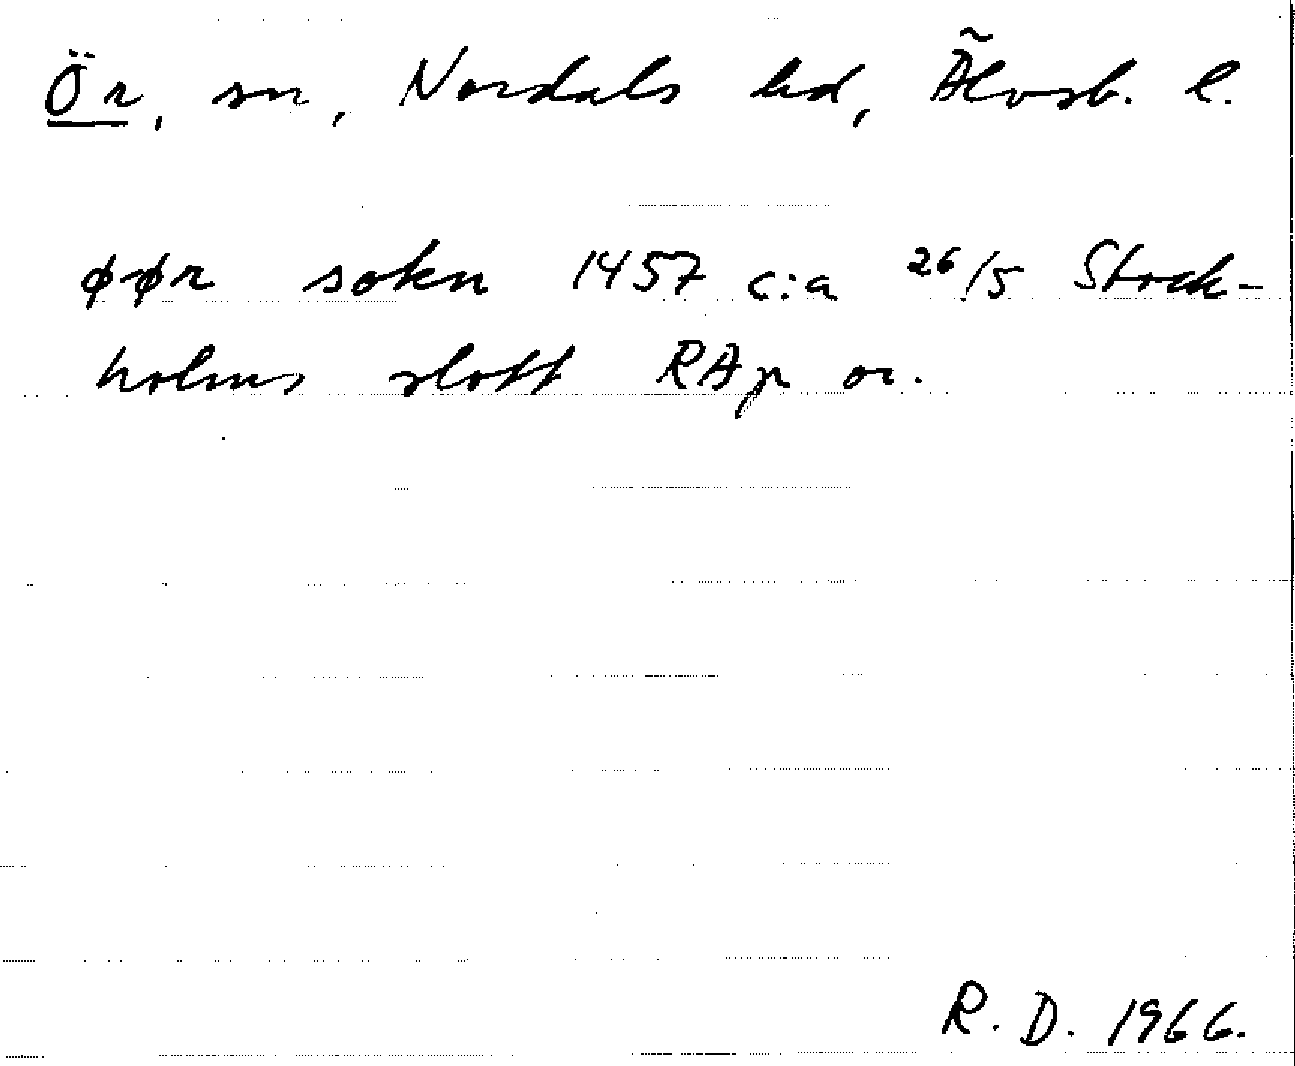 Ör, sn, Nordals hd, Älvsb. l.
øør sokn 1457 c:a 26/5 Stock-
holms slott RAp or.
R. D. 1966.